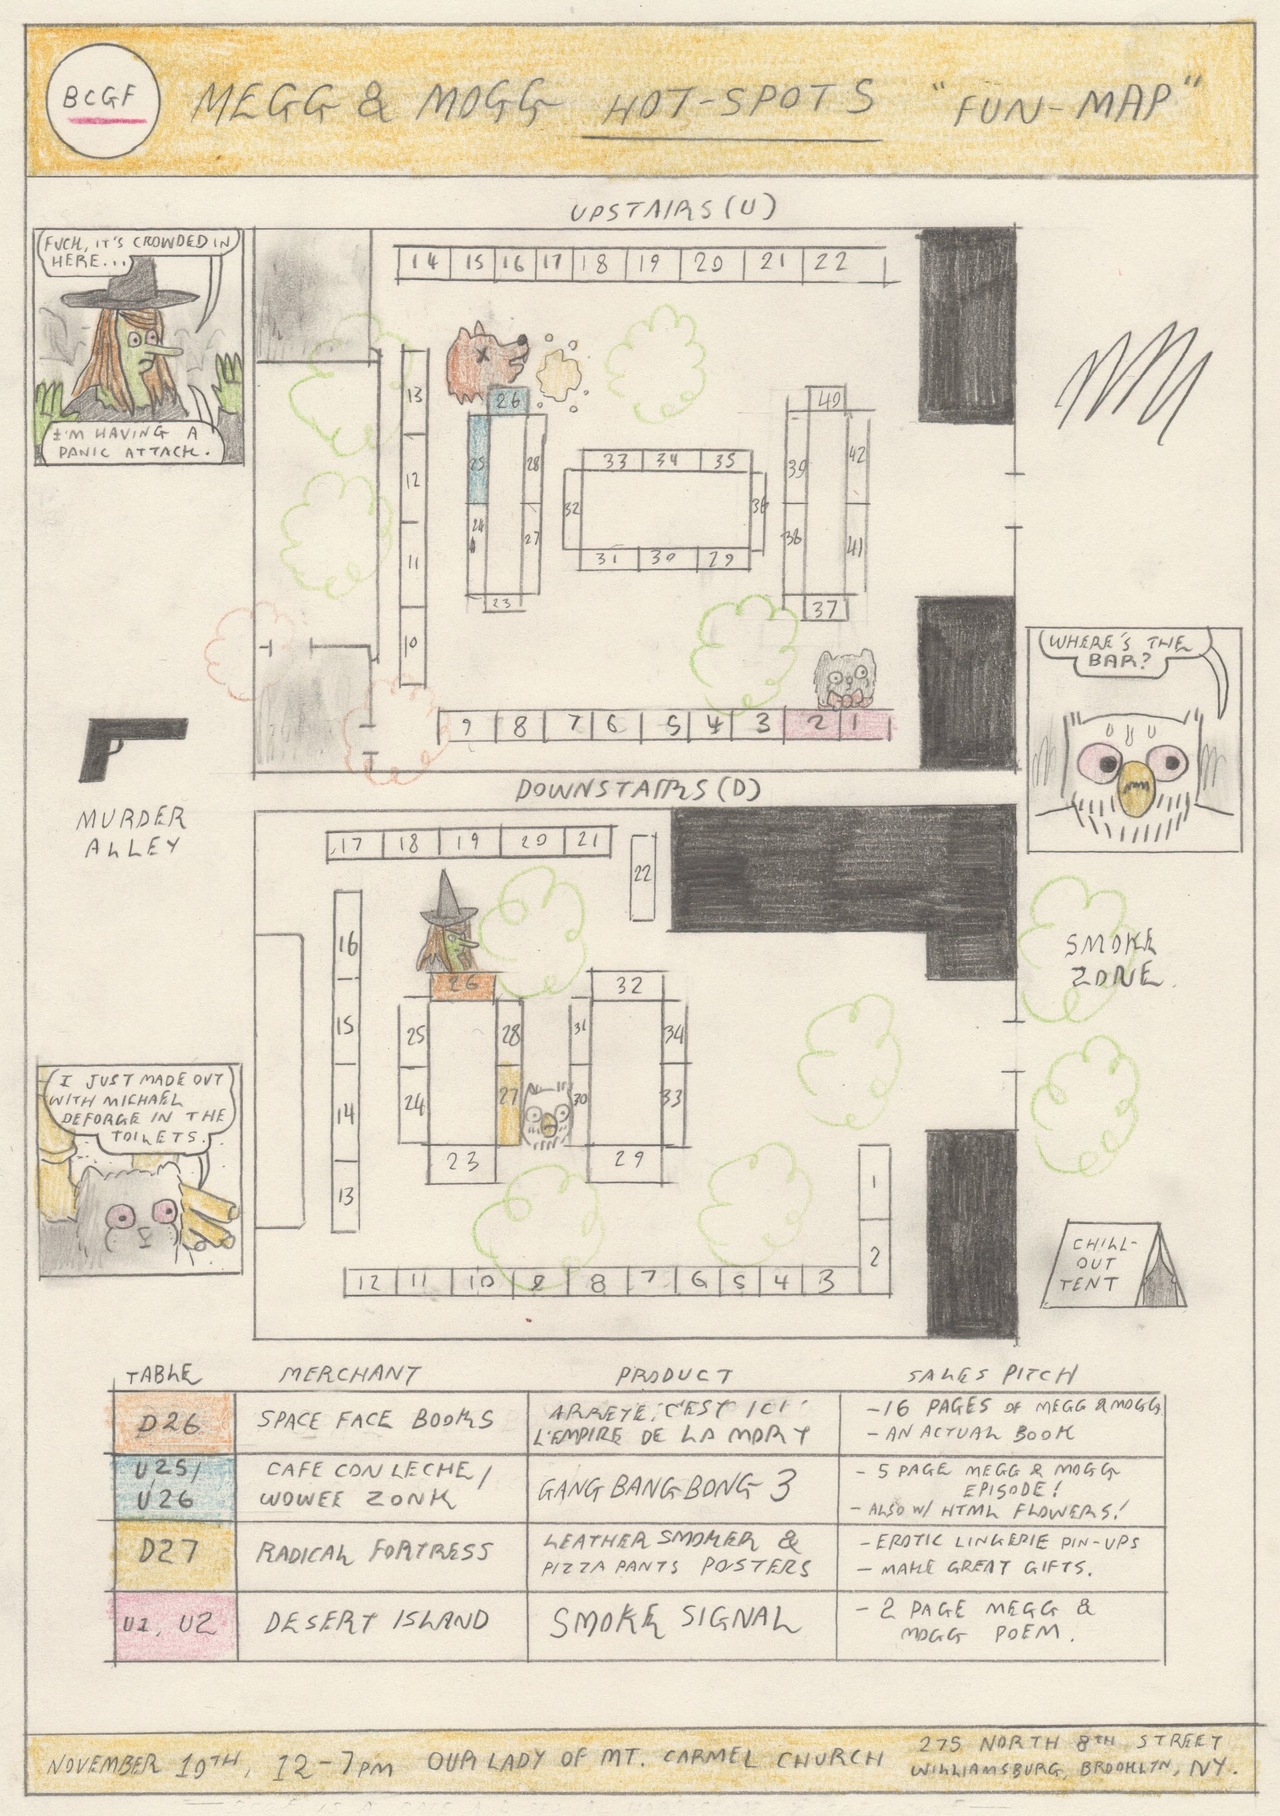 BCGF
MEGG & MOGG HOT-SPOTS "FUN-MAP"
UPSTAIRS (U)
FUCK, IT'S CROWDED IN
HERE...
I'M HAVING A
PANIC ATTACK.
14 15 16 17 18 19 20 21 22
13
12
11
10
26
25
28
24
27
23
33 34 35
32
36
31 30 29
40
39
42
38
41
37
9 8 7 6 5 4 3 2 1
WHERE'S THE
BAR?
MURDER
ALLEY
DOWNSTAIRS (D)
17 18 19 20 21
22
16
15
14
13
26
25
28
24
27
23
32
31
34
30
33
29
1
2
12 11 10 9 8 7 6 5 4 3
SMOKE
ZONE
I JUST MADE OUT
WITH MICHAEL
DEFORGE IN THE
TOILETS.
CHILL-
OUT
TENT
TABLE MERCHANT PRODUCT SALES PITCH
D26
SPACE FACE BOOKS
ARRETE, C'EST ICI
L'EMPIRE DE LA MORT
- 16 PAGES OF MEGG & MOGG
- AN ACTUAL BOOK
U25/
U26
CAFE CON LECHE/
WOWEE ZONK
GANG BANG BONG 3
- 5 PAGE MEGG & MOGG
EPISODE!
- ALSO W/ HTML FLOWERS!
D27
RADICAL FORTRESS
LEATHER SMOKER &
PIZZA PANTS POSTERS
- EROTIC LINGERIE PIN-UPS
- MAKE GREAT GIFTS.
U1, U2
DESERT ISLAND
SMOKE SIGNAL
- 2 PAGE MEGG &
MOGG POEM.
NOVEMBER 10TH, 12-7PM OUR LADY OF MT. CARMEL CHURCH
275 NORTH 8TH STREET
WILLIAMSBURG, BROOKLYN, NY.